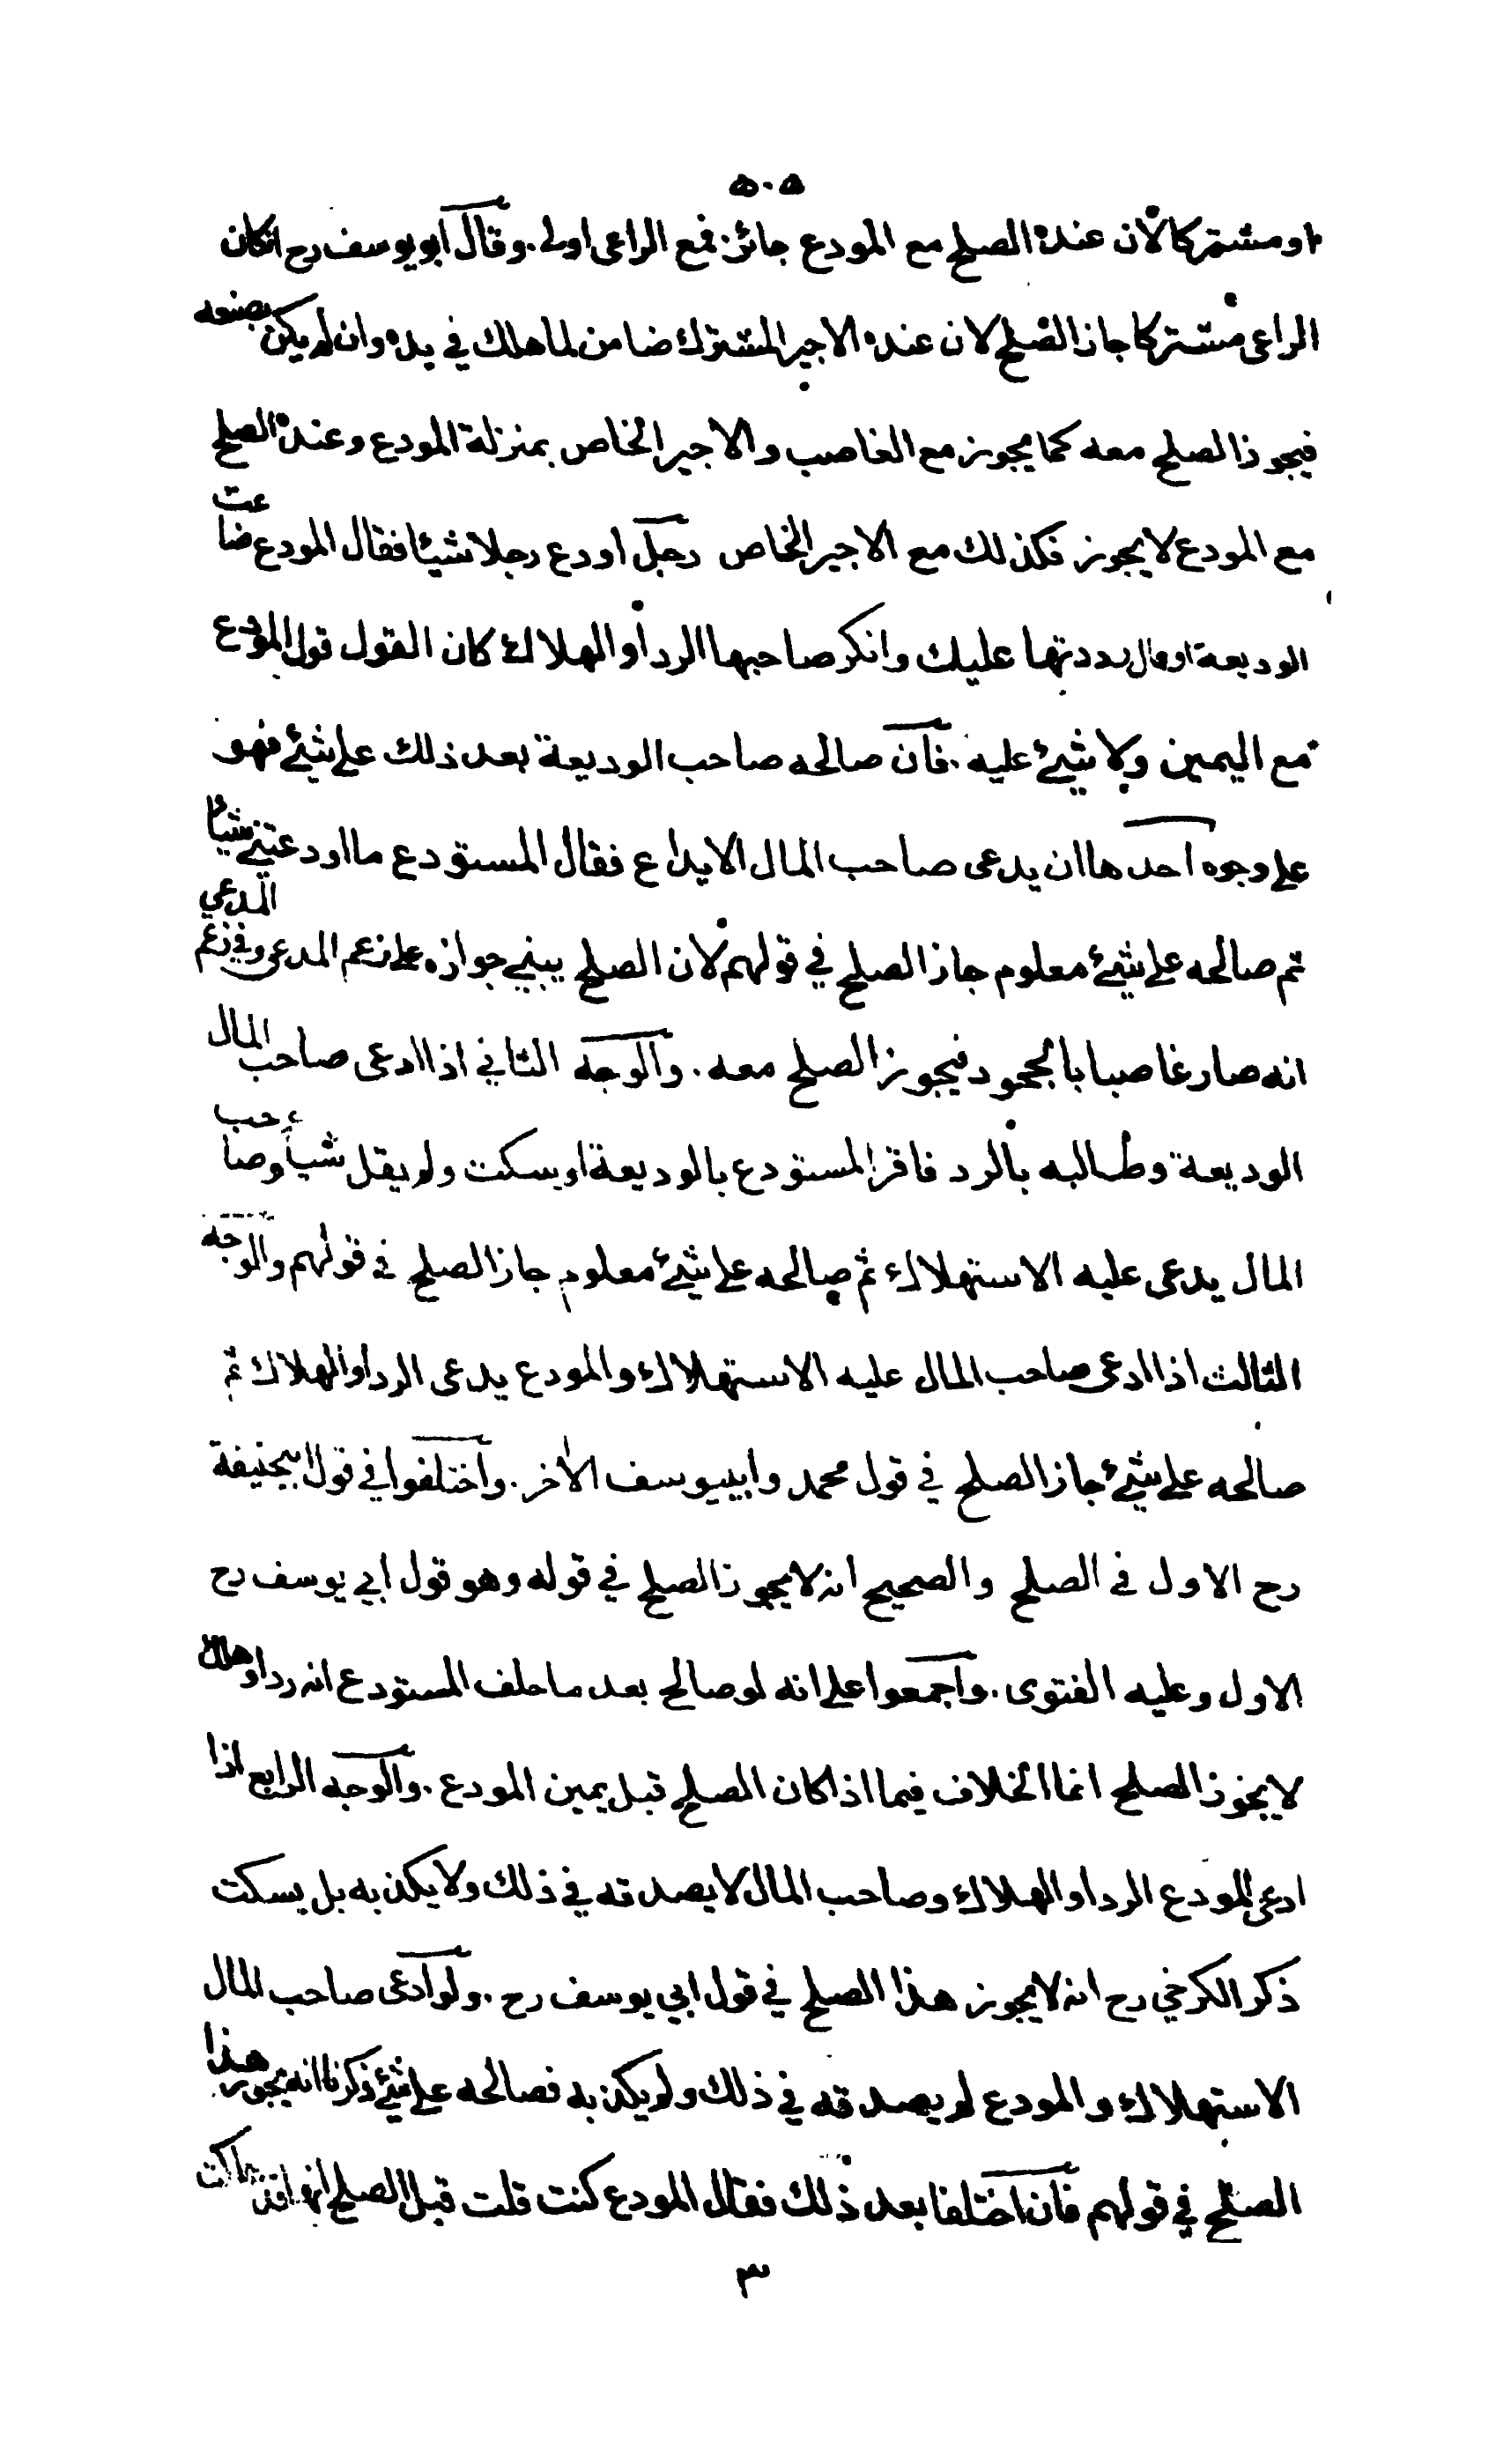 ٥٠٥
او مشتركا لان عنده الصلح مع المودع جائز فمع الراعى اولى . وقال ابو يوسف رح انكان
الراعى مشتركا جاز الصلح لان عنده الاجير المشترك ضامن لما هلك في يده وان لم يكن بصنعه
فيجوز الصلح معه كما يجوز مع الغاصب والاجير الخاص بمنزلة المودع وعنده الصلح
مع المودع لا يجوز فكذلك مع الاجير الخاص رجل اودع رجلا شيئا فقال المودع ضاعت
الوديعة او قال رددتها عليك وانكر صاحبها الرد او الهلاك كان القول قول المودع
مع اليمين ولا شيئ عليه . فان صالحه صاحب الوديعة بعد ذلك على شيئ فهو
على وجوه احدها ان يدعى صاحب المال الايداع فقال المستودع ما اودعتني شيأ
ثم صالحه على شيئ معلوم جاز الصلح في قولهم لان الصلح يبني جوازه على زعم المدعى وفي زعم المدعي
انه صار غاصبا بالجحود فيجوز الصلح معه . والوجه الثاني اذا ادعى صاحب المال
الوديعة وطالبه بالرد فاقر المستودع بالوديعة او سكت ولم يقل شيأ وصاحب
المال يدعى عليه الاستهلاك ثم صالحه على شيئ معلوم جاز الصلح في قولهم والوجه
الثالث اذا ادعى صاحب المال عليه الاستهلاك والمودع يدعى الرد او الهلاك ثم
صالحه على شيئ جاز الصلح في قول محمد وابييوسف الاخر . واختلفوا في قول ابيحنيفة
رح الاول في الصلح والصحيح انه لا يجوز الصلح في قوله وهو قول ابي يوسف رح
الاول وعليه الفتوى . واجمعوا على انه لو صالح بعد ما حلف المستودع انه رد او هلك
لا يجوز الصلح انما الخلاف فيما اذا كان الصلح قبل يمين المودع . والوجه الرابع اذا
ادعى المودع الرد او الهلاك وصاحب المال لا يصدقه في ذلك ولا يكذبه بل يسكت
ذكر الكرخي رح انه لا يجوز هذا الصلح في قول ابي يوسف رح . ولو ادعى صاحب المال
الاستهلاك والمودع لم يصدقه في ذلك ولم يكذبه فصالحه على شيئ ذكرنا انه يجوز هذا
الصلح في قولهم فان اختلفا بعد ذلك فقال المودع كنت قلت قبل الصلح انها قد هلكت
٣